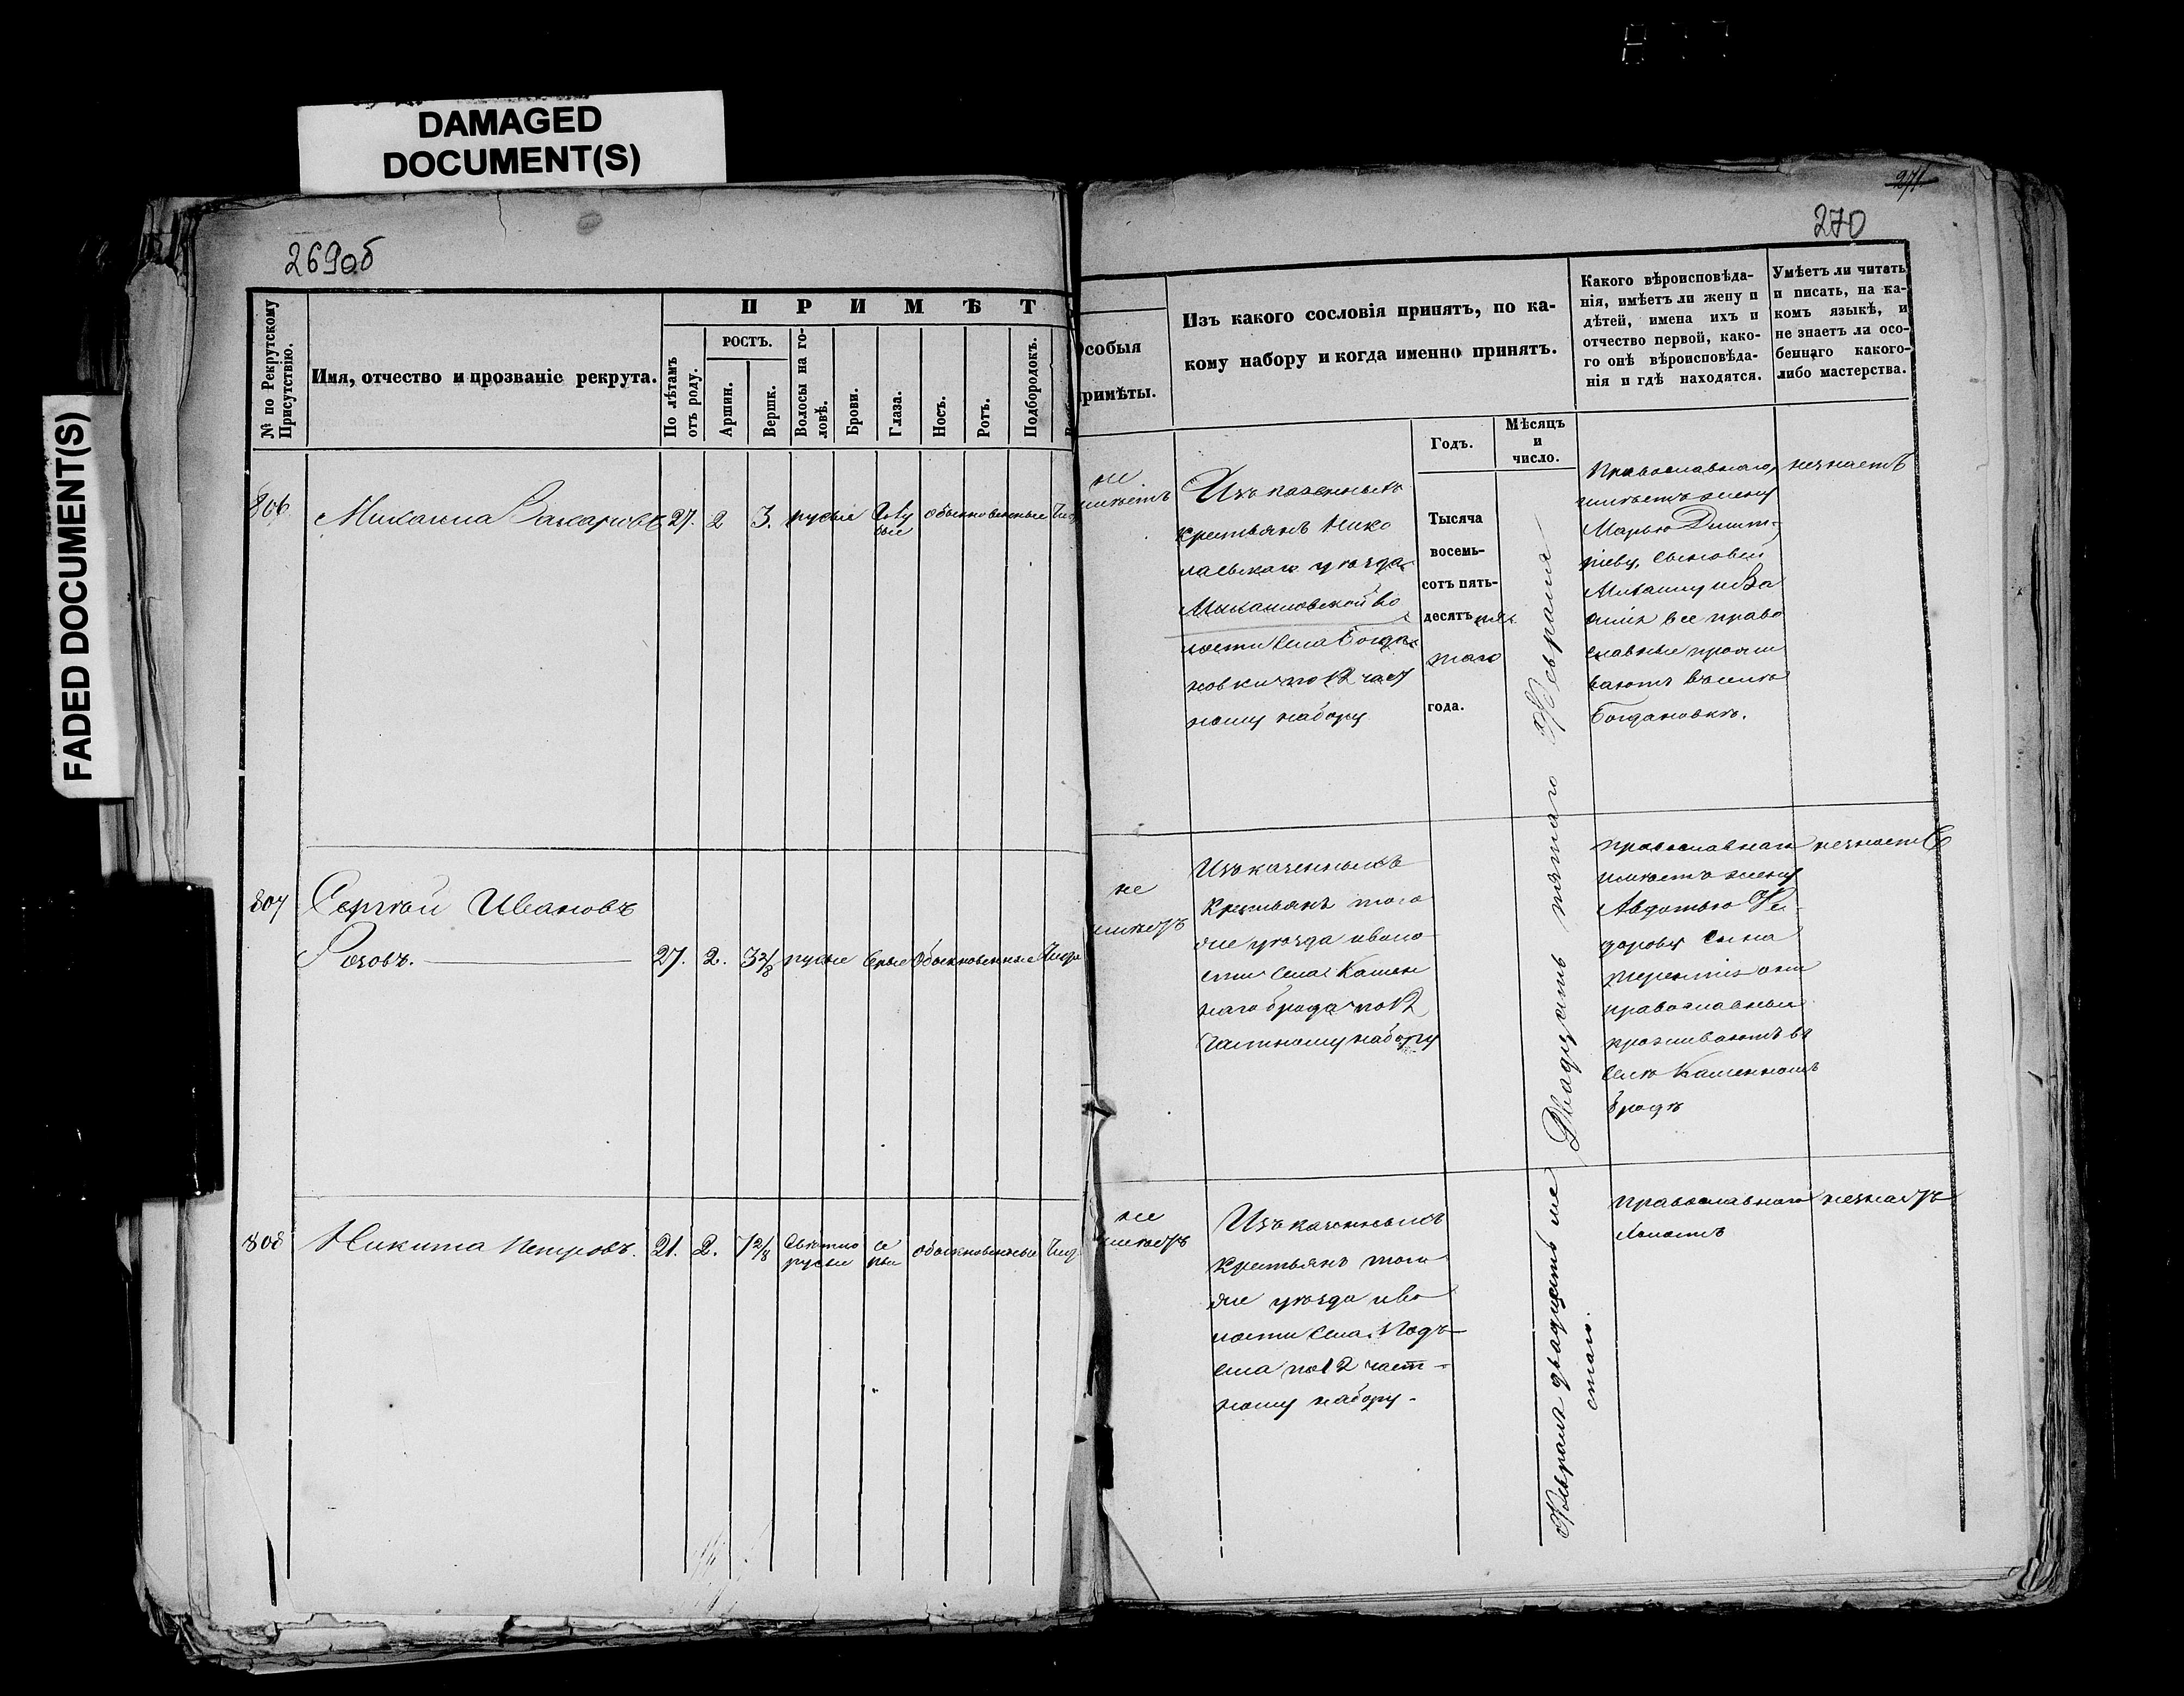 DAMAGED
DOCUMENT(S)
FADED DOCUMENT(S)
269об
271
270
№ по Рекрутскому
Присутствію.
Имя, отчество и прозваніе рекрута.
П Р И М Ѣ Т
По лѣтамъ
отъ роду.
РОСТЪ.
Аршин.
Вершк.
Волосы на го-
ловѣ.
Брови.
Глаза.
Носъ.
Ротъ.
Подбородокъ.
Особыя
примѣты.
Изъ какого сословія принятъ, по ка-
кому набору и когда именно принятъ.
Годъ.
Мѣсяцъ
и
число.
Какого вѣроисповѣда-
нія, имѣетъ ли жену и
дѣтей, имена ихъ и
отчество первой, како-
го онѣ вѣроисповѣда-
нія и гдѣ находятся.
Умѣетъ ли читать
и писать, на ка-
комъ языкѣ, и
не знаетъ ли осо-
беннаго какого-
либо мастерства.
806
Михаила Захаровъ 27. 2 3. русые Голу
бые
обыкновенные
не
имѣетъ
Изъ казенныхъ
крестьянъ Нико
лаевскаго уѣзда
Михаиловской во
лости села Богда
новки по 12 част
ному набору
Тысяча
восемь-
сотъ пять-
десятъ пя
таго
года.
Двадцать пятаго Февраля
Православнаго
имѣетъ жену
Марью Дмит-
ріеву, сыновей
Михаилу и Ва
силія все право
славные прожи
ваютъ въ селѣ
Богдановкѣ.
незнаетъ
807
Сергѣй Ивановъ
27. 2. 3 2/8 русые Серые Обыкновенные
не
имѣетъ
Изъ казенныхъ
крестьянъ того
же уѣзда и воло
сти села Камен
наго брода по 12
Частному набору
православнаго
имѣетъ жену
Авдотью Фе-
дорову сына
Терентія они
православные
проживаютъ въ
селѣ Каменномъ
бродѣ
незнаетъ
808
Никита Петровъ. 21. 2. 7 2/8 Свѣтло
русые
се
рые
обыкновенные
не
имѣетъ
Изъ казенныхъ
крестьянъ того
же уѣзда и во
лости села Подъ-
ема по 12 част-
ному набору.
Февраля двадцать ше
стаго.
православнаго
Холостъ
незнаетъ